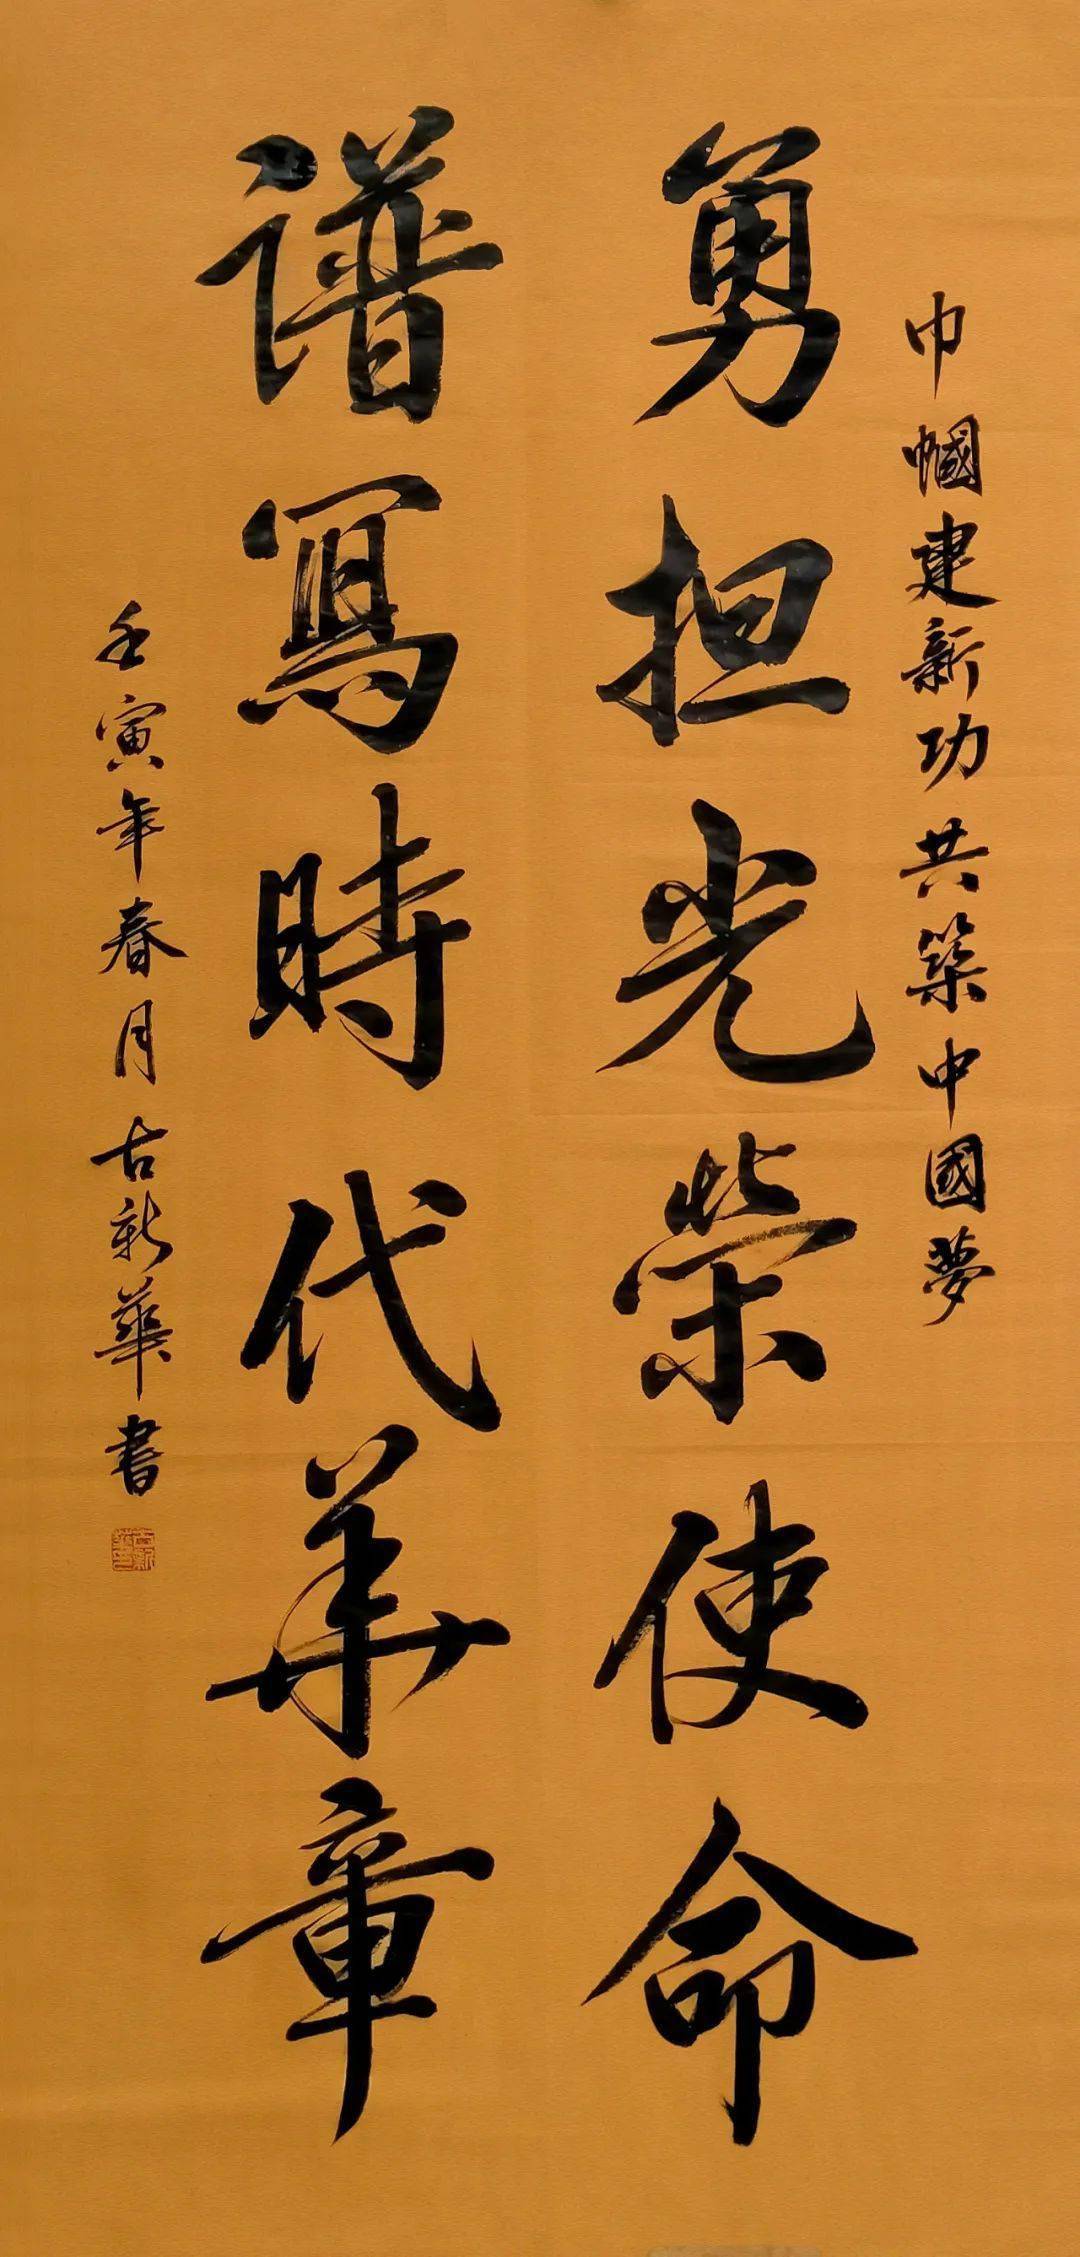 巾帼建新功共築中國夢
勇担光荣使命
谱寫時代华章
壬寅年春月古新華書